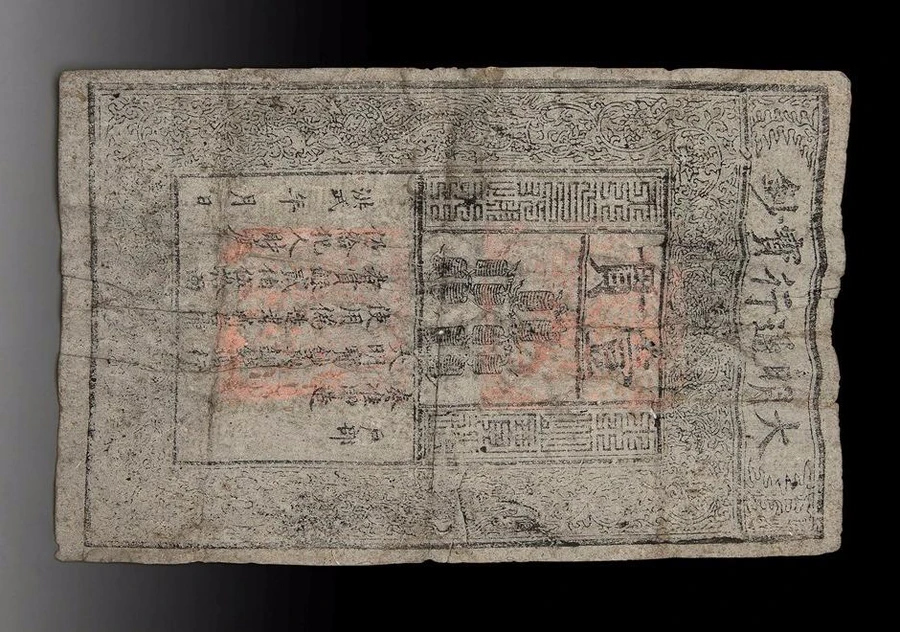 大明通行寶鈔
壹貫
大明寶鈔
天下通行
戶部
奏准印造
大明寶鈔
使用偽造者斬
賞銀貳伯伍拾兩
仍給犯人財產
洪武 年 月 日